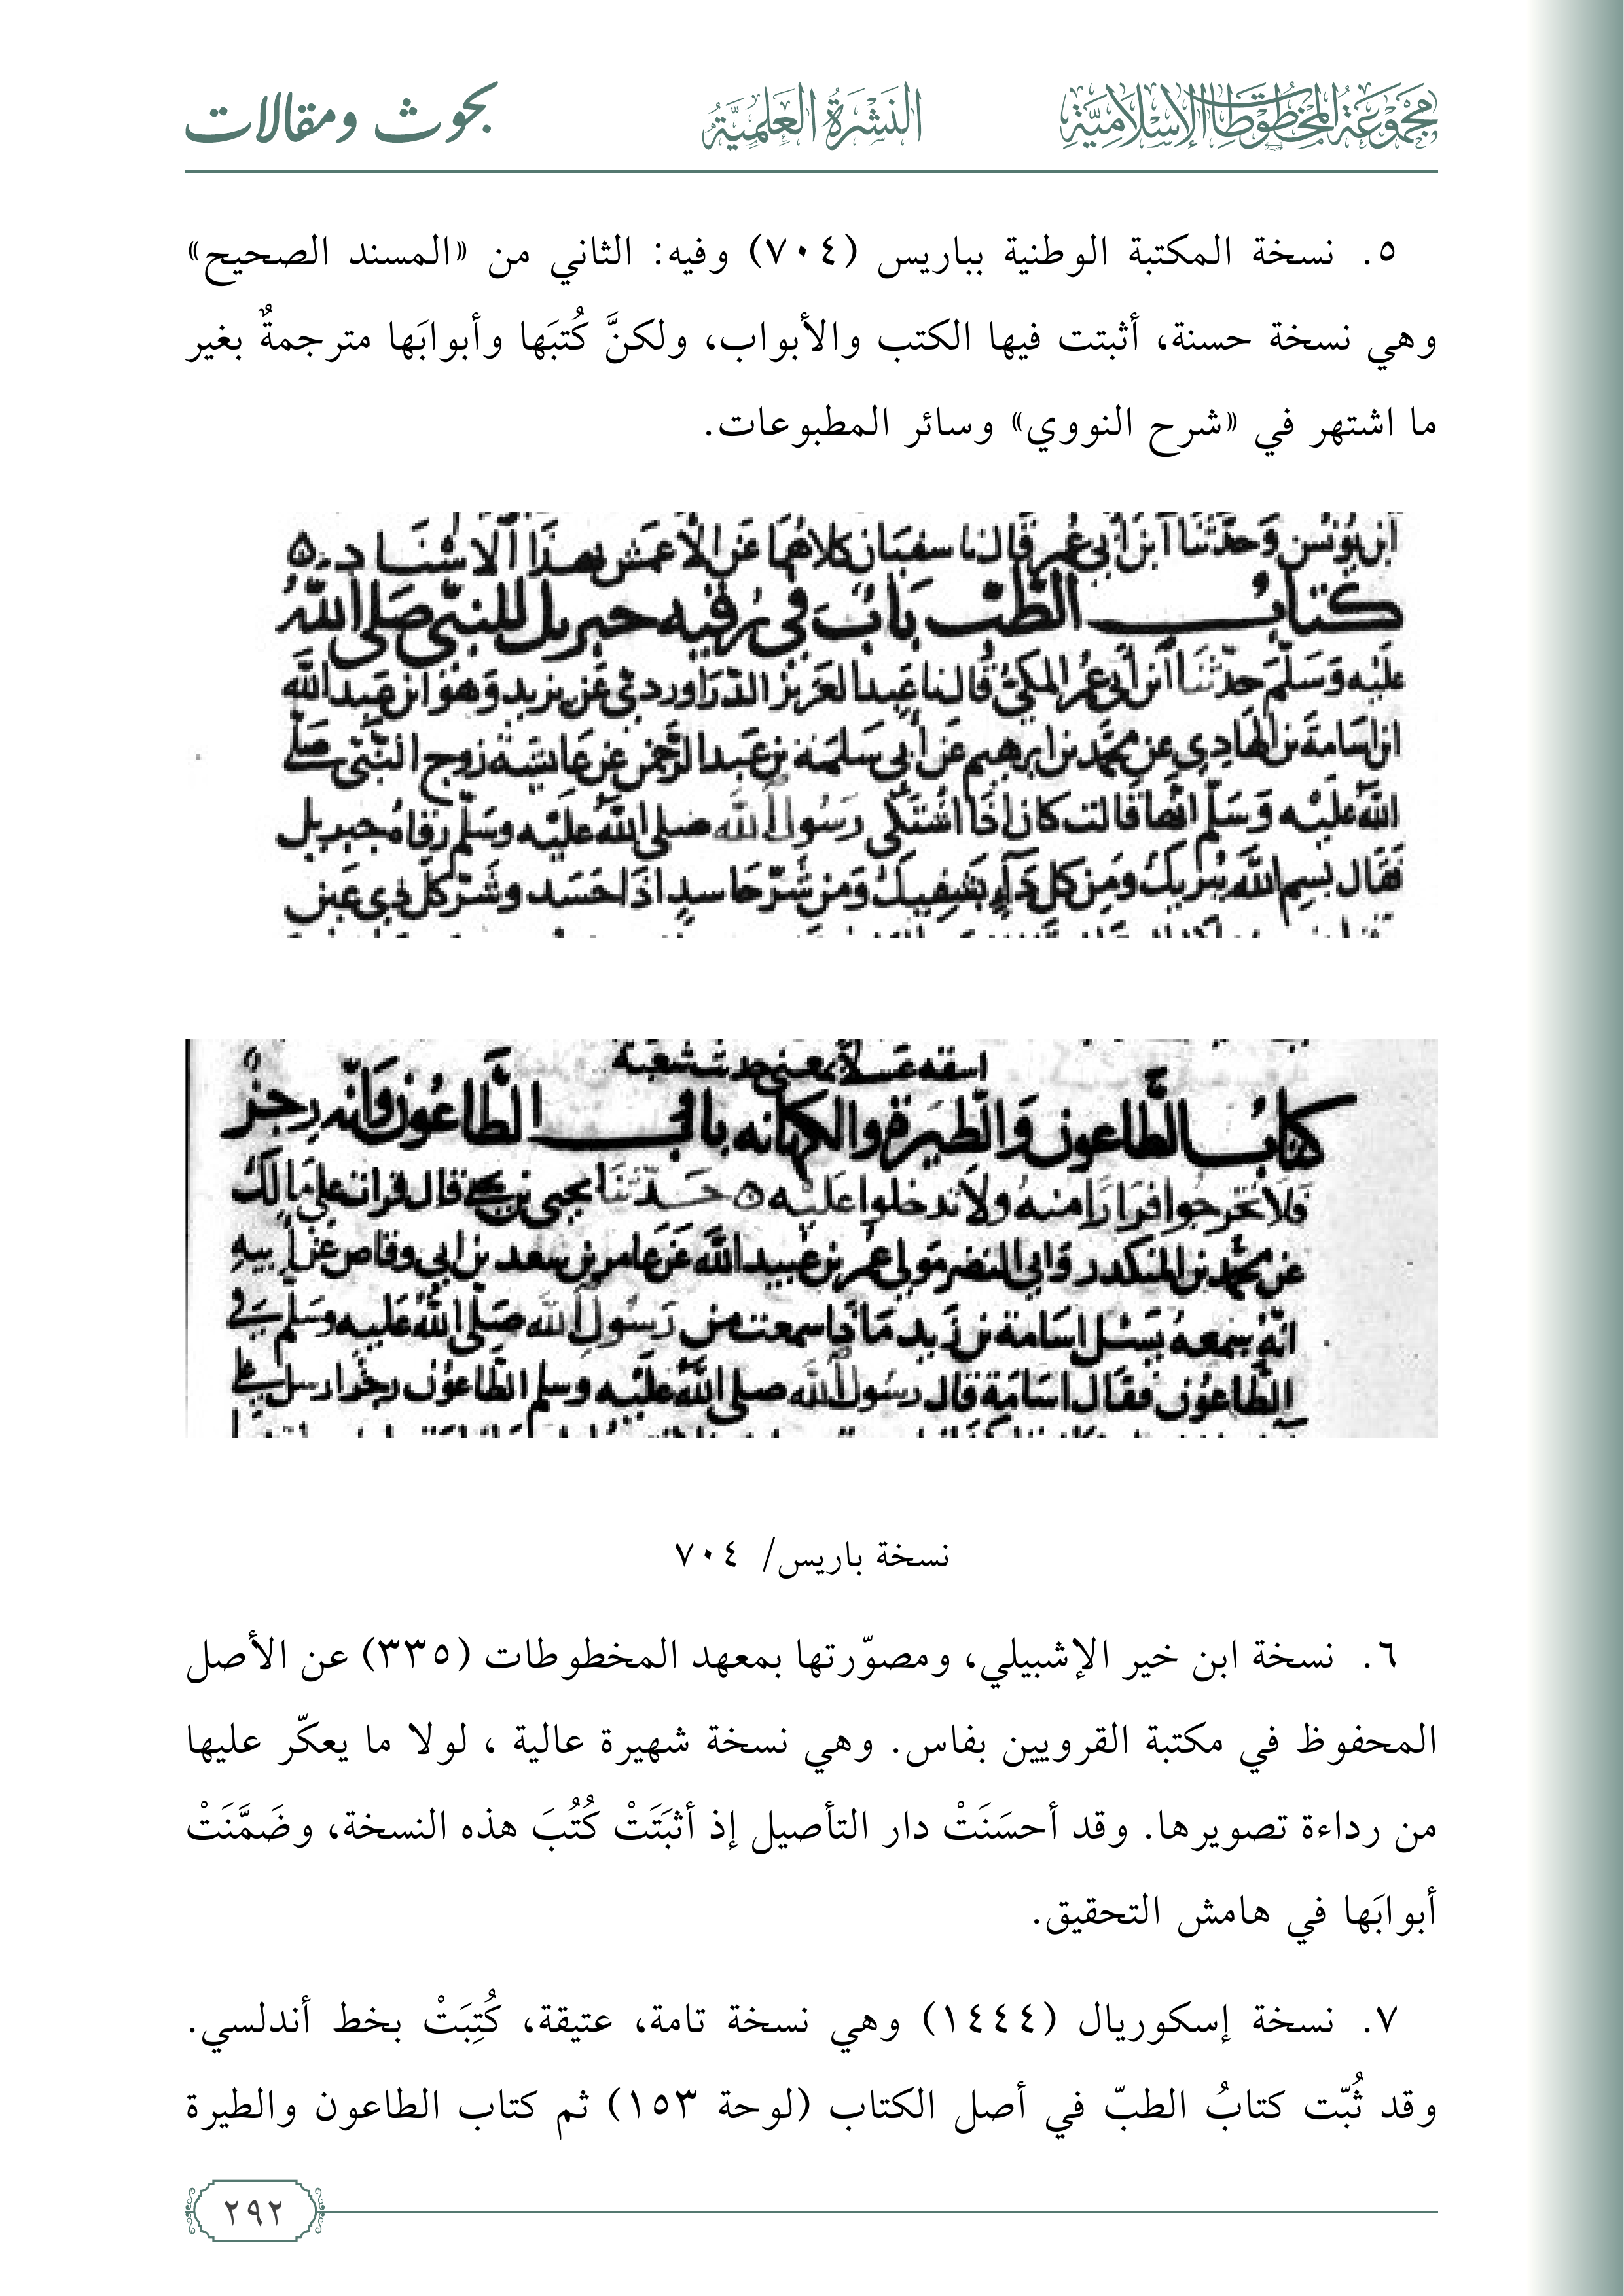 مجموعة المخطوطات الإسلامية
النشرة العلمية
بحوث ومقالات
٥. نسخة المكتبة الوطنية بباريس (٧٠٤) وفيه: الثاني من «المسند الصحيح»
وهي نسخة حسنة، أثبتت فيها الكتب والأبواب، ولكنَّ كُتبَها وأبوابَها مترجمةٌ بغير
ما اشتهر في «شرح النووي» وسائر المطبوعات.
ابن يونس وحدثنا ابن أبي عمر قال نا سفيان كلاهما عن الأعمش بهذا الاسناد
كتاب الطب باب في رقيه جبريل للنبي صلى الله
عليه وسلم حدثنا ابن أبي عمر المكي قال نا عبد العزيز الدراوردي عن يزيد وهو ابن عبد الله
ابن اسامة بن الهادي عن محمد بن ابرهيم عن أبي سلمة بن عبد الرحمن عن عائشة زوج النبي صلى
الله عليه وسلم انها قالت كان اذا اشتكى رسول الله صلى الله عليه وسلم رقاه جبريل
فقال بسم الله يبريك ومن كل داء يشفيك ومن شر حاسد اذا حسد وشر كل ذي عين
كتاب الطاعون والطيرة والكهانه باب في الطاعون وانه رجز
فلا تخرجوا فرارا منه ولا تدخلوا عليه حدثنا يحيى بن يحيى قال قرات على مالك
عن محمد بن المنكدر وابي النضر مولى عمر بن عبيد الله عن عامر بن سعد بن ابي وقاص عن أبيه
انه سمعه يسئل اسامة بن زيد ماذا سمعت من رسول الله صلى الله عليه وسلم في
الطاعون فقال اسامة قال رسول الله صلى الله عليه وسلم الطاعون رجز ارسل على
نسخة باريس/ ٧٠٤
٦. نسخة ابن خير الإشبيلي، ومصوّرتها بمعهد المخطوطات (٣٣٥) عن الأصل
المحفوظ في مكتبة القرويين بفاس. وهي نسخة شهيرة عالية ، لولا ما يعكّر عليها
من رداءة تصويرها. وقد أحسَنَتْ دار التأصيل إذ أثبَتَتْ كُتُبَ هذه النسخة، وضَمَّنَتْ
أبوابَها في هامش التحقيق.
٧. نسخة إسكوريال (١٤٤٤) وهي نسخة تامة، عتيقة، كُتِبَتْ بخط أندلسي.
وقد ثُبّت كتابُ الطبّ في أصل الكتاب (لوحة ١٥٣) ثم كتاب الطاعون والطيرة
٢٩٢